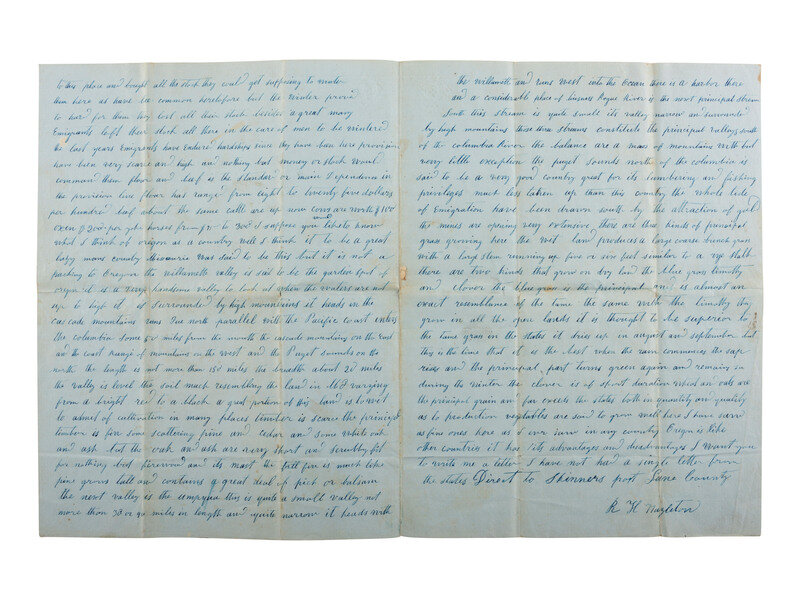 to this place and bought all the stock they coul get suposing to winter
them here as have ben common heretofore but the winter prov'd
to hard for them they lost all their stock besides a great many
Emigrants left their stock all there in the care of men to be wintered
the last years Emigrants have Endur'd hardships since they have ben here provision
have ben very scarce and high and nothing but money or stock would
command them flour and beef is the standar or main dependence in
the provision line flour has rang'd from eight to twenty five dollars
per hundred beef about the same cattle are up now cows are worth $100
oxen $200 per yoke horses from to 300$ I supose you would like to know
what I think of oregon as a country well I think it to be a great
baby mans country Missourie was said to be this but it is not a
patching to Oregon the willamett valley is said to be the garden spot of
oregon it is a very handsome valley to look at when the waters are not
up to high it is surrounded by high mountains it heads in the
cascade mountains runs due north parallel with the Pacific coast enters
the columbia some 80 miles from the mouth the cascade mountains on the East
an the coast range of mountains on the west and the Puget sounds on the
north the length is not more than 150 miles the breadth about 20 miles
the valley is level the soil much resembling the land in varying
from a bright red to a black a great portion of this land is to wet
to admit of cultivation in many places timber is scarce the principal
timber is fir some scattering pine and cedar and some white oak
and ash but the oak and ash are very short an scrubby fit
for nothing but firewood and its mast the fall fir is much like
pine grows tall and contains a great deal of pich or balsam
the next valley is the umpqua this is quite a small valley not
more than 30 or 40 miles in length and quite narrow it heads with
the willamett and runs west into the Ocean there is a harbor there
and a considerable place of business Rogue River is the next principal stream
south this stream is quite small its valley narrow an surrounded
by high mountains these three streams constitute the principal valleys south
of the columbia River the balance are a mass of mountains with but
very little exception the puget sounds north of the columbia is
said to be a very good country great for its lumbering an fishing
privileges much less taken up than this country the whole tide
of Emigration have ben drawn south by the attraction of gold
the mines are opening very extensive there are three kinds of principal
grass growing here the wet land produces a large coarse bunch grass
with a large stem running up five or six feet similar to a rye stalk
there are two kinds that grow on dry land the blue grass timothy
and clover the blue grass is the principal one is almost an
exact resemblance of the tame the same with the timothy they
grow in all the open lands it is thought to be superior to
the tame grass in the states it dries up in august and september but
this is the time that it is the best when the rain commences the sap
rises and the principal part turns green again and remains so
during the winter the clover is of short duration wheat an oats are
the principal grain and far exceeds the states both in quantity an quality
as to production vegetables are said to grow well here I have saw
as fine ones here as I ever saw in any country Oregon is like
other countries it has its advantages and disadvantages I want you
to write me a letter I have not had a single letter from
the states Direct to Skinners post Lane County
R H Hazleton